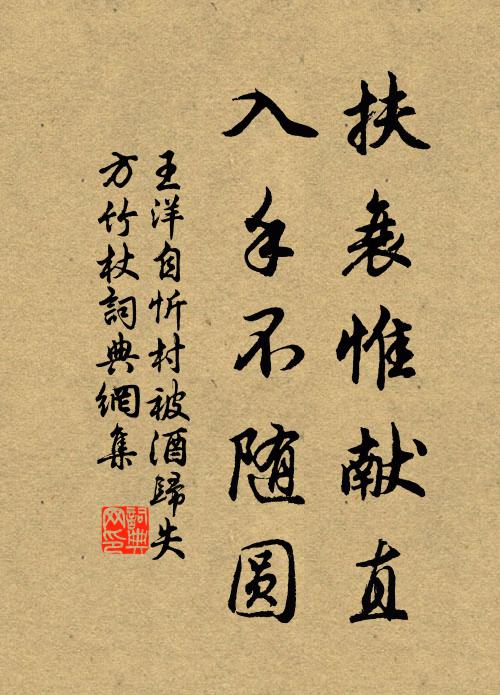 扶衰惟献直
入手不随圆
王洋自忻村被酒歸失
方竹杖詞典網集
詞典
网印